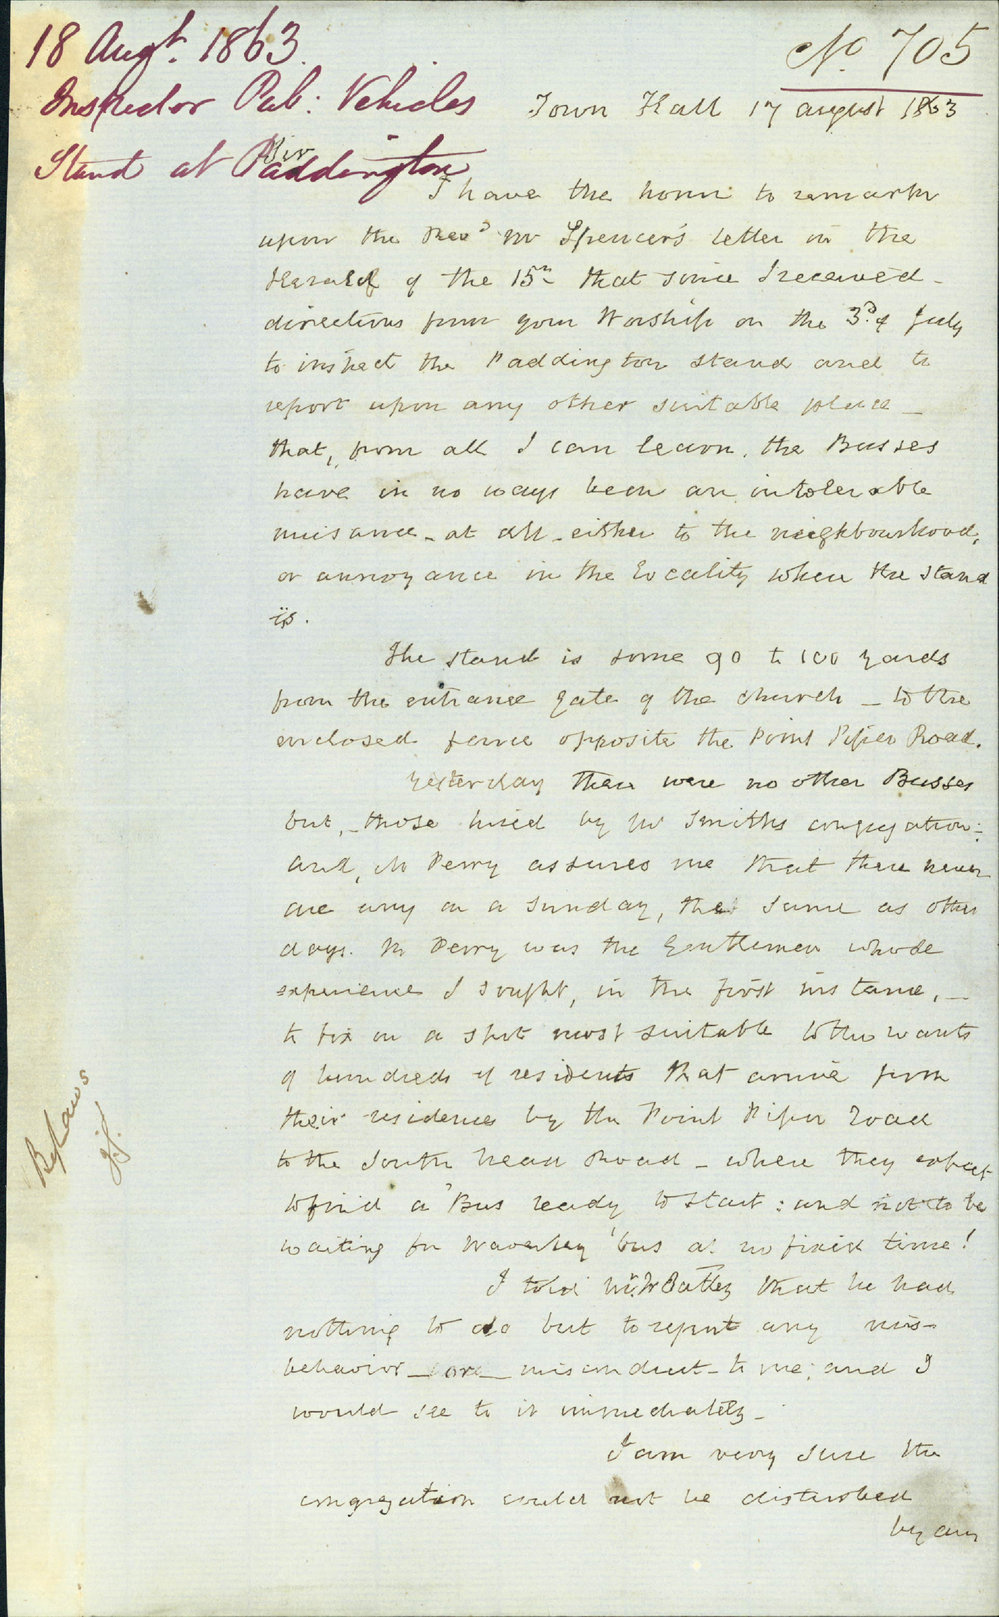 18 Augt. 1863.
No 705
Inspector Pub: Vehicles
Town Hall 17 august 1863
Stand at Paddington
Sir
I have the honor to remark
upon the Revd Mr Spencer's letter in the
Herald of the 15th that since I received
directions from your Worship on the 3rd of July
to inspect the Paddington stand and to
report upon any other suitable place _
that, from all I can learn, the Busses
have in no ways been an intolerable
nuisance - at all - either to the neighbourhood,
or annoyance in the locality when the stand
is.
The stand is some 90 to 100 yards
from the entrance gate of the church - to the
enclosed fence opposite the Point Piper Road.
Yesterday there were no other Busses
but, - those hired by Mr Smiths congregation:
and, Mr Perry assures me that there never
are any on a Sunday, the same as other
days. Mr Perry was the Gentlemen whose
experience I sought, in the first instance, _
to fix on a spot most suitable to the wants
of hundreds of residents that arrive from
their residences by the Point Piper road
to the South head Road - where they expect
to find a 'Bus ready to start: and not to be
waiting for Waverley 'bus at no fixed time!
I told Mr. W Batley that he had
nothing to do but to report any mis-
behavior - or - misconduct - to me; and I
would see to it immediately -
I am very sure the
congregation could not be disturbed
by any
Bylaws